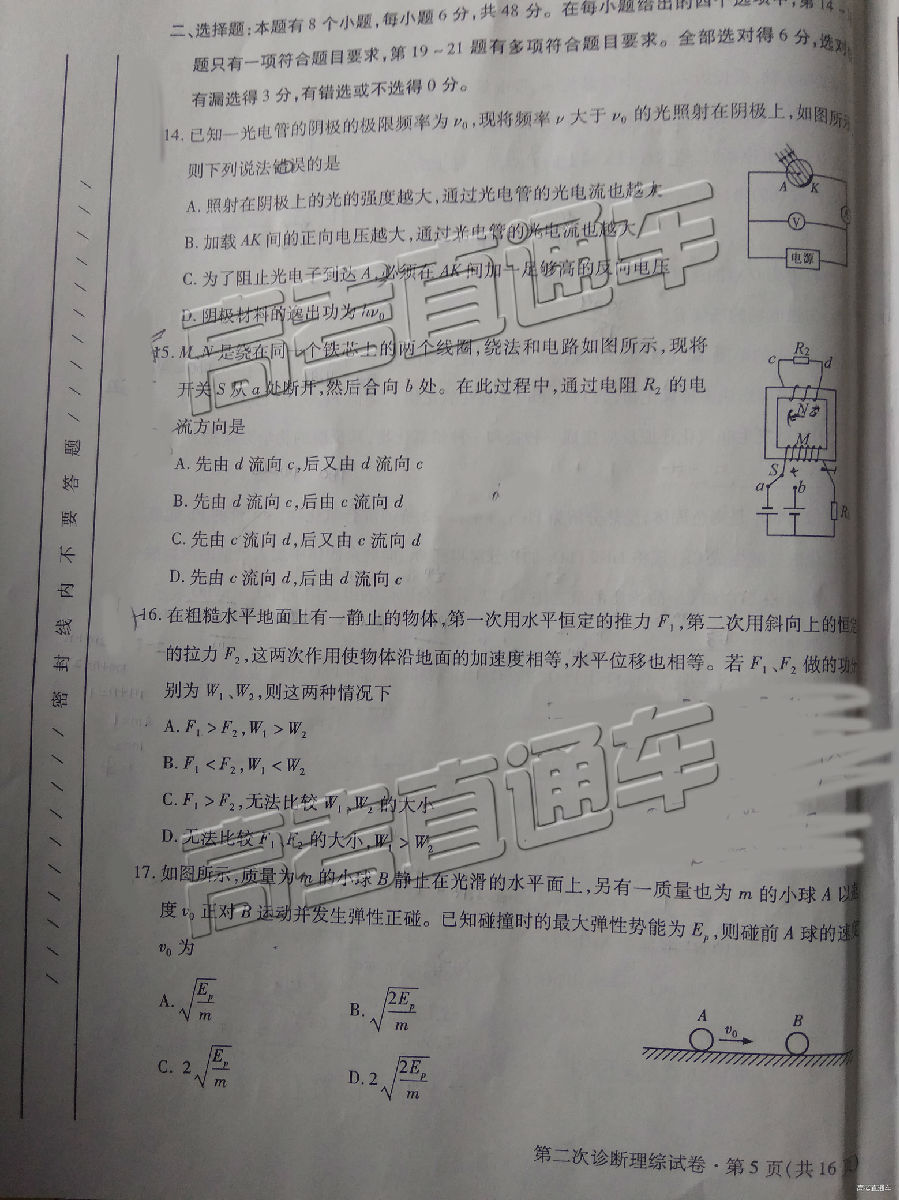 二、选择题:本题有8个小题,每小题6分,共48分。在每小题给出的四个选项中,第14~
题只有一项符合题目要求,第19~21题有多项符合题目要求。全部选对得6分,选对
有漏选得3分,有错选或不选得0分。
14.已知一光电管的阴极的极限频率为ν₀,现将频率ν大于ν₀的光照射在阴极上,如图所示
则下列说法错误的是
A.照射在阴极上的光的强度越大,通过光电管的光电流也越大
B.加载AK间的正向电压越大,通过光电管的光电流也越大
C.为了阻止光电子到达A,必须在AK间加一足够高的反向电压
D.阴极材料的逸出功为hν₀
A K
V
电源
15.M、N是绕在同一个铁芯上的两个线圈,绕法和电路如图所示,现将
开关S从a处断开,然后合向b处。在此过程中,通过电阻R₂的电
流方向是
A.先由d流向c,后又由d流向c
B.先由d流向c,后由c流向d
C.先由c流向d,后又由c流向d
D.先由c流向d,后由d流向c
R₂
c d
N
M
S
a b
R₁
16.在粗糙水平地面上有一静止的物体,第一次用水平恒定的推力F₁,第二次用斜向上的恒定
的拉力F₂,这两次作用使物体沿地面的加速度相等,水平位移也相等。若F₁、F₂做的功分
别为W₁、W₂,则这两种情况下
A.F₁>F₂,W₁>W₂
B.F₁<F₂,W₁<W₂
C.F₁>F₂,无法比较W₁、W₂的大小
D.无法比较F₁、F₂的大小,W₁>W₂
17.如图所示,质量为m的小球B静止在光滑的水平面上,另有一质量也为m的小球A以速
度v₀正对B运动并发生弹性正碰。已知碰撞时的最大弹性势能为Eₚ,则碰前A球的速度
v₀为
A.√(Eₚ/m)
B.√(2Eₚ/m)
C.2√(Eₚ/m)
D.2√(2Eₚ/m)
A v₀ B
第二次诊断理综试卷·第5页(共16页)
密封线内不要答题
高考直通车
高考直通车
高考直通车